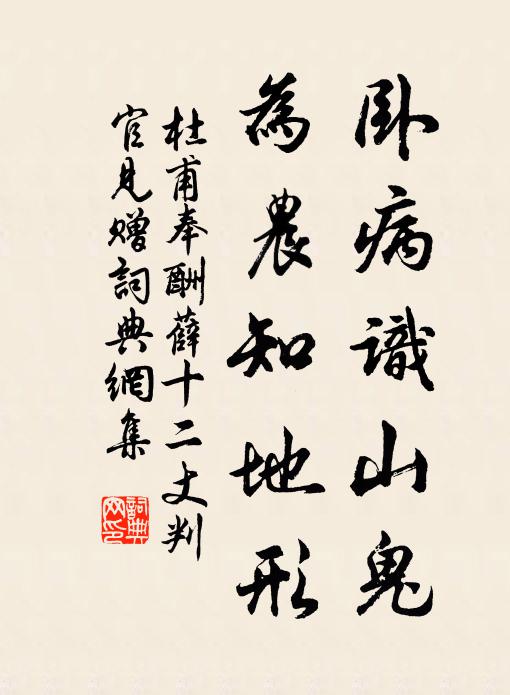 卧病識山鬼
為農知地形
杜甫奉酬薛十二丈判
官見贈詞典網集
詞典
网印